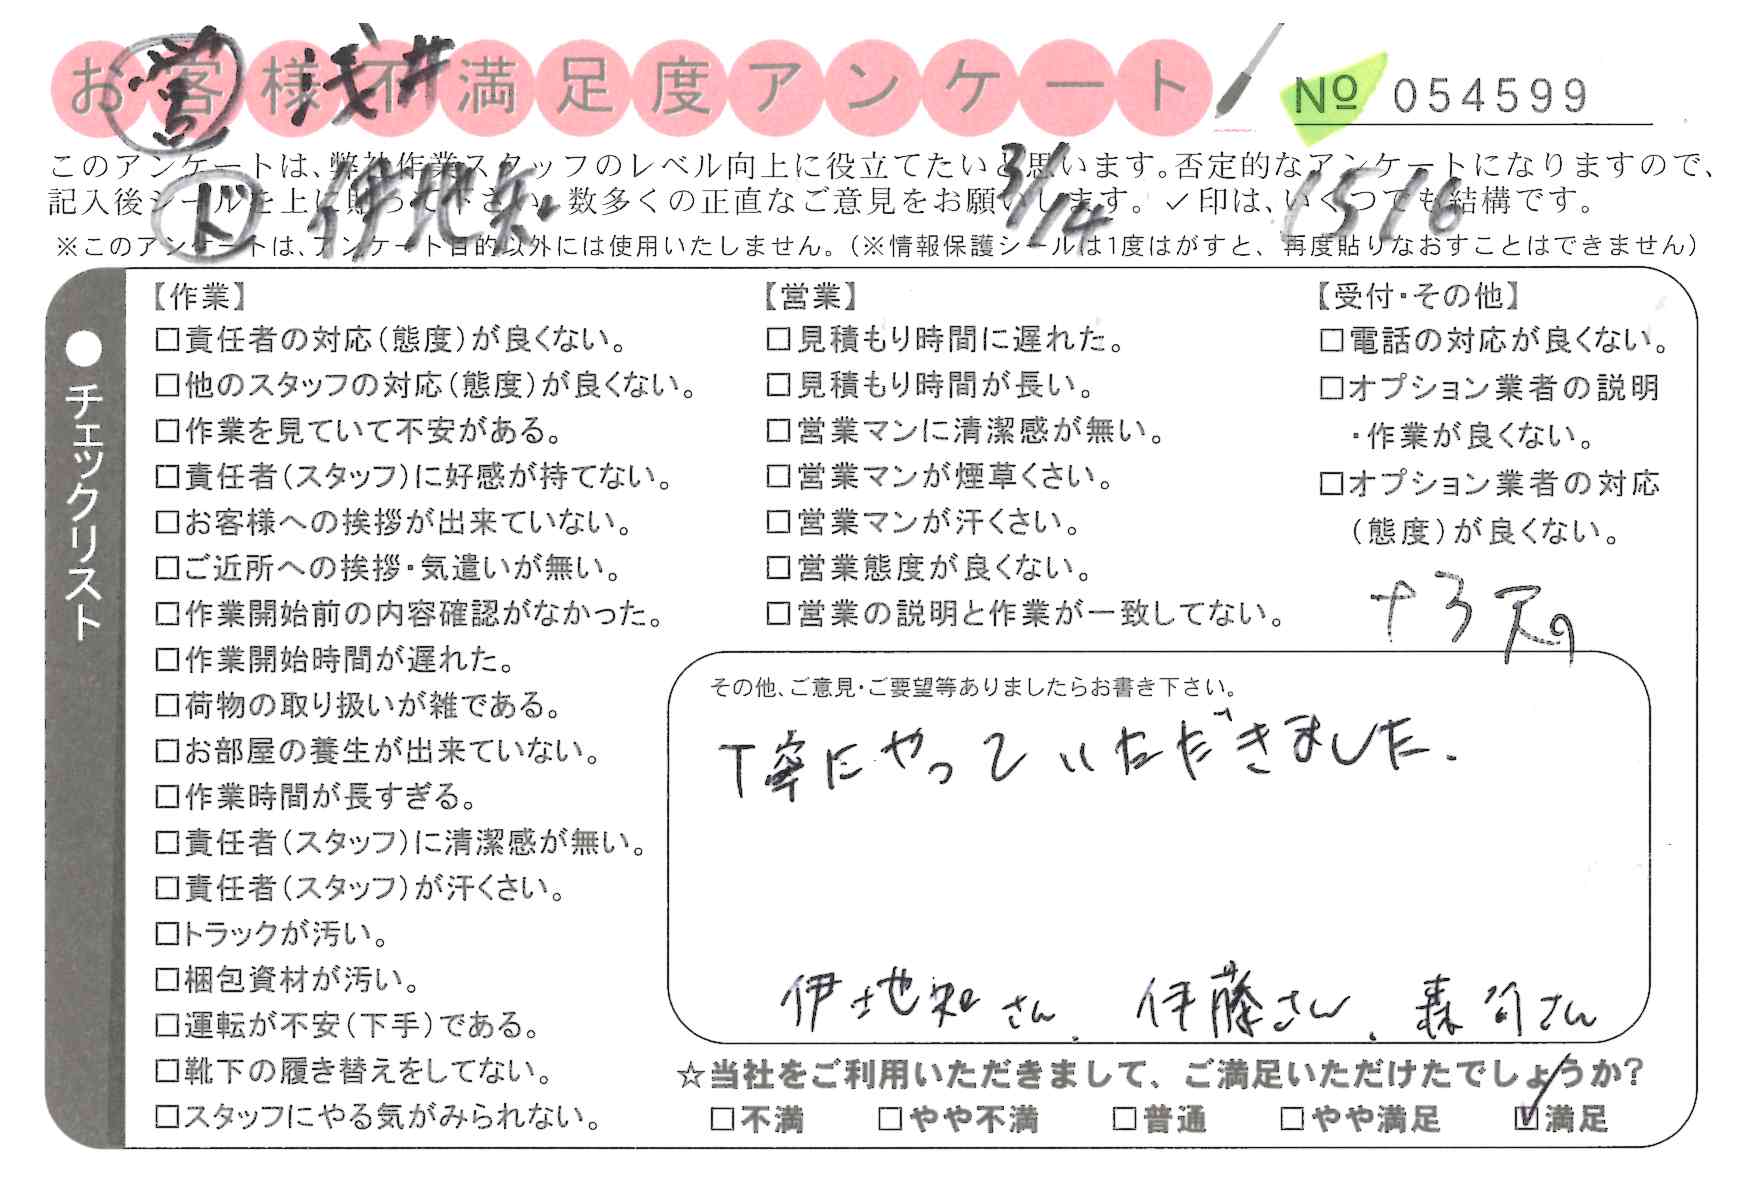 お客様不満足度アンケート
営 浅井
№ 054599
このアンケートは、弊社作業スタッフのレベル向上に役立てたいと思います。否定的なアンケートになりますので、
記入後シールを上に貼って下さい。数多くの正直なご意見をお願いします。✓印は、いくつでも結構です。
ド 伊地知 3/14 1516
※このアンケートは、アンケート目的以外には使用いたしません。(※情報保護シールは1度はがすと、再度貼りなおすことはできません)
●チェックリスト
【作業】
□責任者の対応(態度)が良くない。
□他のスタッフの対応(態度)が良くない。
□作業を見ていて不安がある。
□責任者(スタッフ)に好感が持てない。
□お客様への挨拶が出来ていない。
□ご近所への挨拶・気遣いが無い。
□作業開始前の内容確認がなかった。
□作業開始時間が遅れた。
□荷物の取り扱いが雑である。
□お部屋の養生が出来ていない。
□作業時間が長すぎる。
□責任者(スタッフ)に清潔感が無い。
□責任者(スタッフ)が汗くさい。
□トラックが汚い。
□梱包資材が汚い。
□運転が不安(下手)である。
□靴下の履き替えをしてない。
□スタッフにやる気がみられない。
【営業】
□見積もり時間に遅れた。
□見積もり時間が長い。
□営業マンに清潔感が無い。
□営業マンが煙草くさい。
□営業マンが汗くさい。
□営業態度が良くない。
□営業の説明と作業が一致してない。
【受付・その他】
□電話の対応が良くない。
□オプション業者の説明
・作業が良くない。
□オプション業者の対応
(態度)が良くない。
その他、ご意見・ご要望等ありましたらお書き下さい。
丁寧にやっていただきました.
伊地知さん、伊藤さん、森町さん
☆当社をご利用いただきまして、ご満足いただけたでしょうか?
□不満 □やや不満 □普通 □やや満足 ☑満足